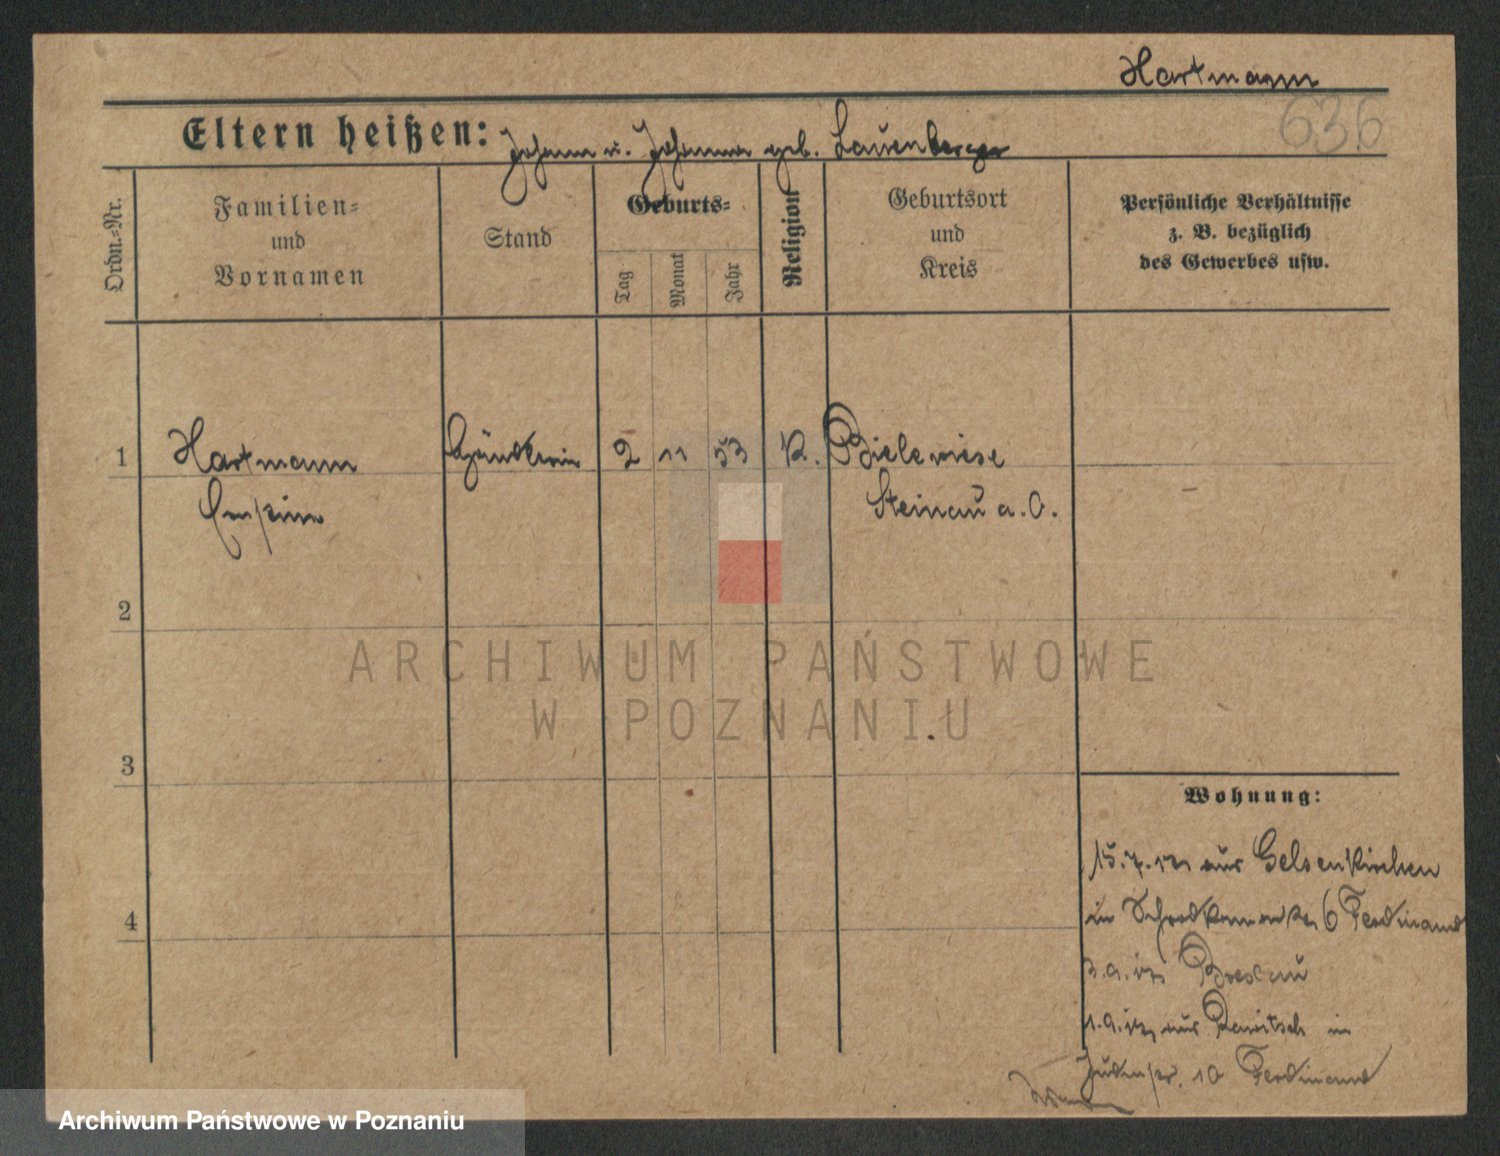 Hartmann
636
Eltern heißen: Johann u. Johanna geb. Lauenberger
Ordn.=Nr.
Familien=
und
Vornamen
Stand
Geburts=
Tag
Monat
Jahr
Religion
Geburtsort
und
Kreis
Persönliche Verhältnisse
z. B. bezüglich
des Gewerbes usw.
1 Hartmann Händlerin 2 11 53 K. Bielewiese
Steinau a. O.
2
3
4
Wohnung:
15.7. aus Gelsenkirchen
in 6 Ferdinand
Breslau
aus Rawitsch in
10 Ferdinand
ARCHIWUM PAŃSTWOWE
W POZNANIU
Archiwum Państwowe w Poznaniu